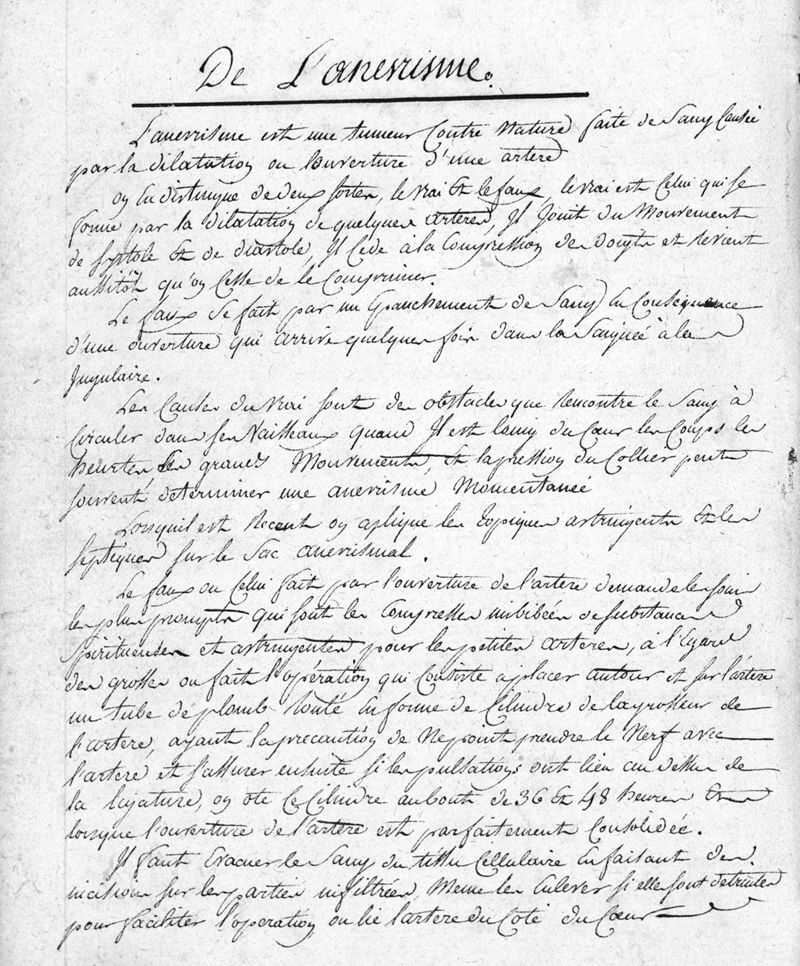 De L'anevrisme.
L'anevrisme est une tumeur Contre Nature faite de Sang Causée
par la dilatation ou l'ouverture d'une artere
on en distingue de deux sortes, le vrai et le faux, le vrai est Celui qui se
forme par la dilatation de quelques arteres, Il Jouit du Mouvement
de systole et de diastole, Il Cede à la Compression des Doigts et revient
aussitôt qu'on Cesse de le Comprimer.
Le faux se fait par un Epanchement de Sang en Consequence
d'une ouverture qui arrive quelques fois dans la Saignée à la
Jugulaire.
Les Causes du vrai sont des obstacles que Rencontre le Sang à
Circuler dans ses Vaisseaux quand Il est lancé du Cœur les Coups les
heurtes les grands Mouvements, et la pression du Collier peut
souvent determiner une anevrisme Momentaneé
Lorsquil est Recent on aplique les topiques astringents et les
septiques sur le Sac anevrismal.
Le faux ou Celui fait par l'ouverture de l'artere demande les soins
les plus prompts qui sont les Compresses imbibées de substances
Spiritueuses et astringentes pour les petites arteres, à l'Egard
des grosses on fait l'opération qui Consiste a placer autour et sur l'artere
un tube de plomb Roulé en forme de Cilindre de la grosseur de
l'artere, ayant la precaution de Ne point prendre le Nerf avec
l'artere et s'assurer ensuite si les pulsations ont lieu au dessus de
la ligature, on ote Ce Cilindre au bout de 36 et 48 heures
lorsque l'ouverture de l'artere est parfaitement Consolidée.
Il faut Evacuer le Sang du tissu Cellulaire en faisant des
incisions sur les parties infiltrées, Meme les Enlever si elle sont detruites
pour faciliter l'operation on lie l'artere du Coté du Cœur